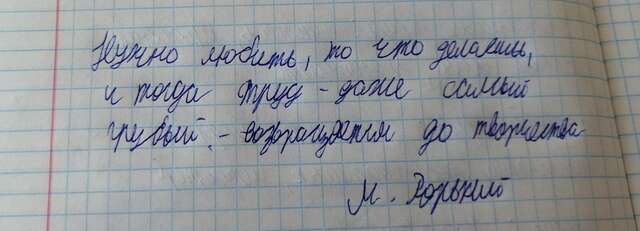 Нужно любить, то что делаешь,
и тогда труд - даже самый
грубый, - возвращается до творчества
М. Горький